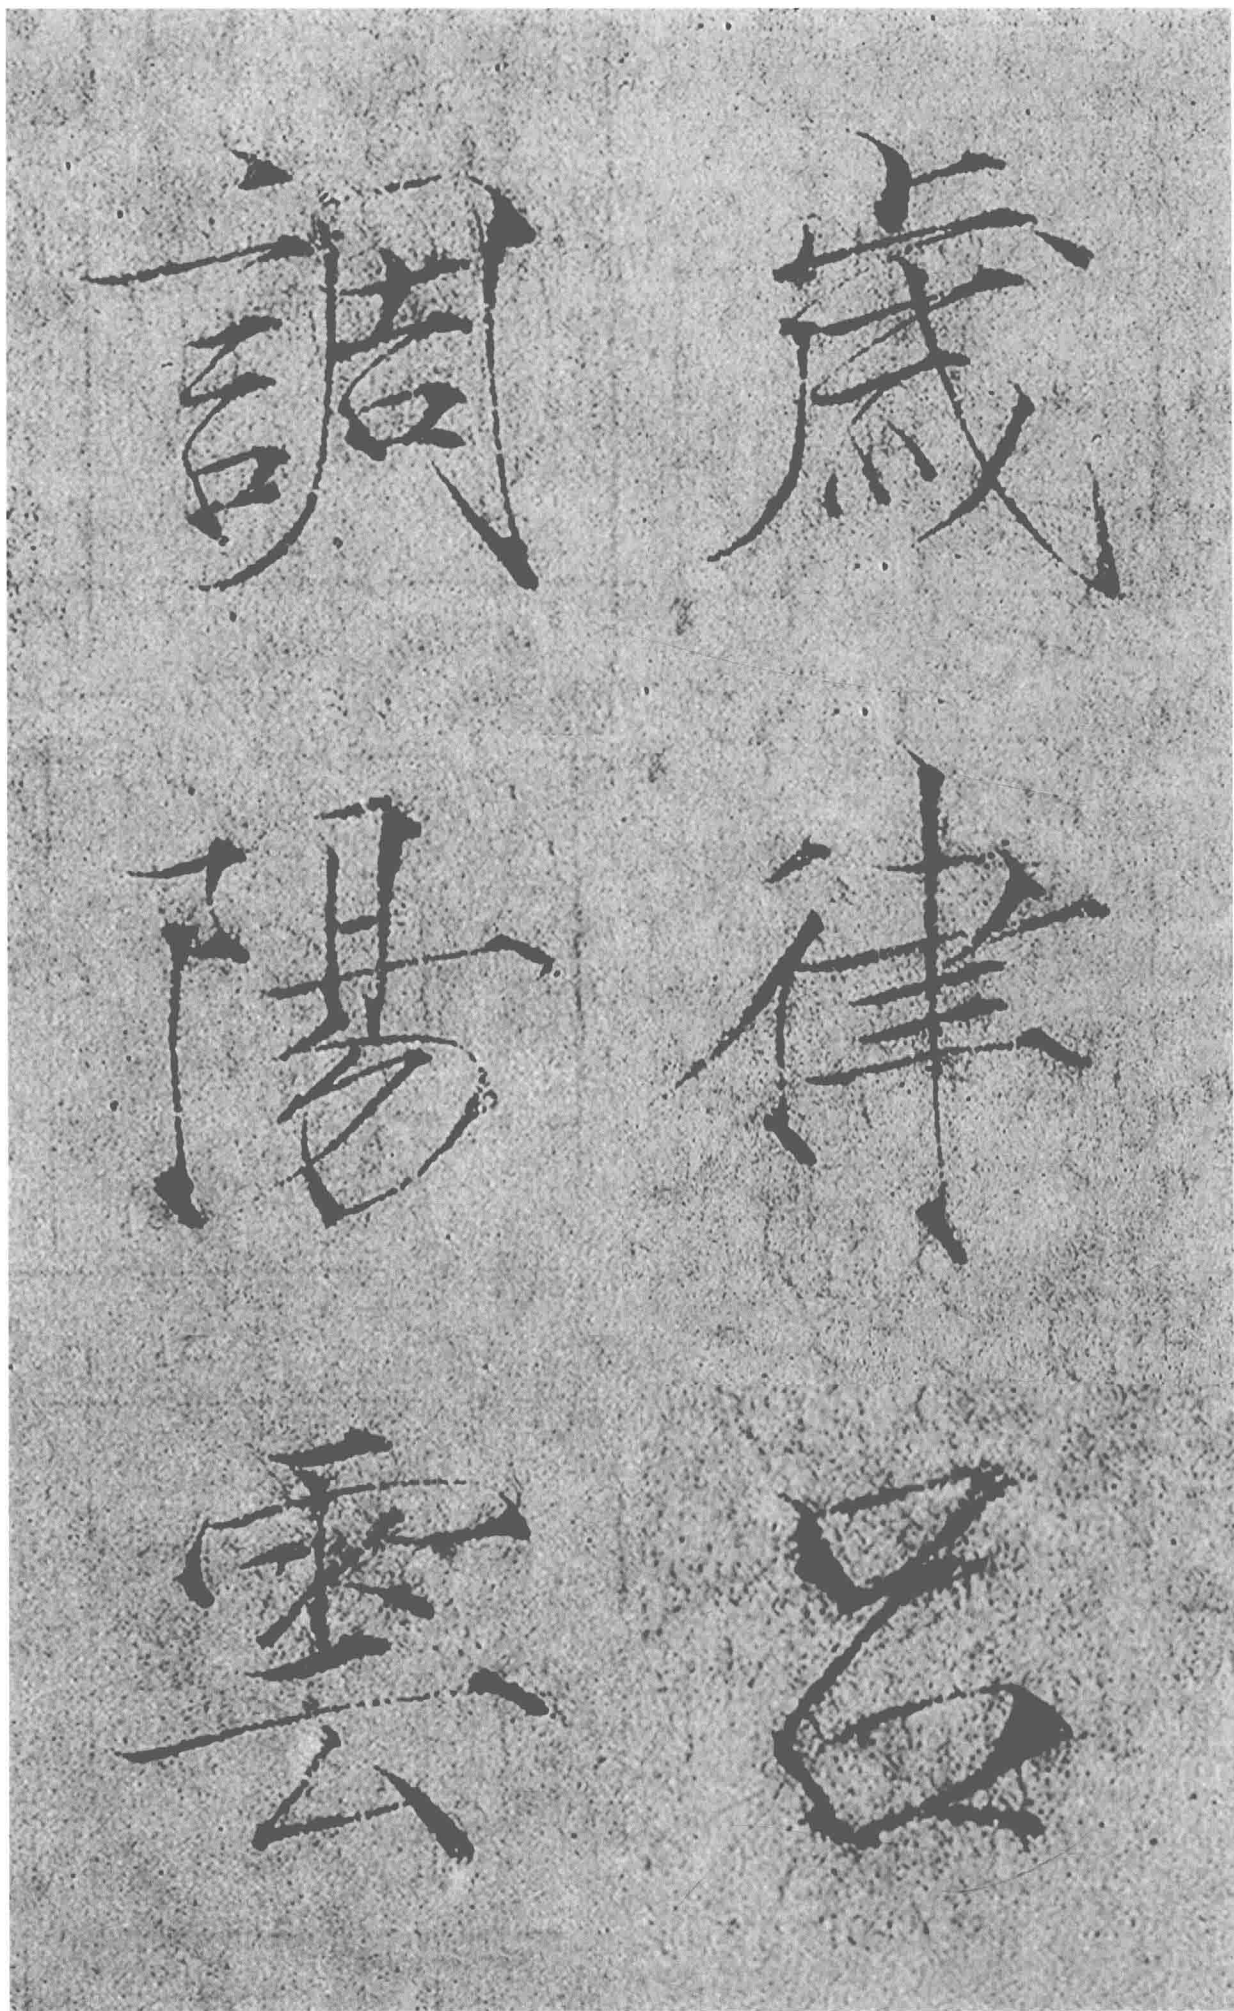 歲律呂
調陽雲